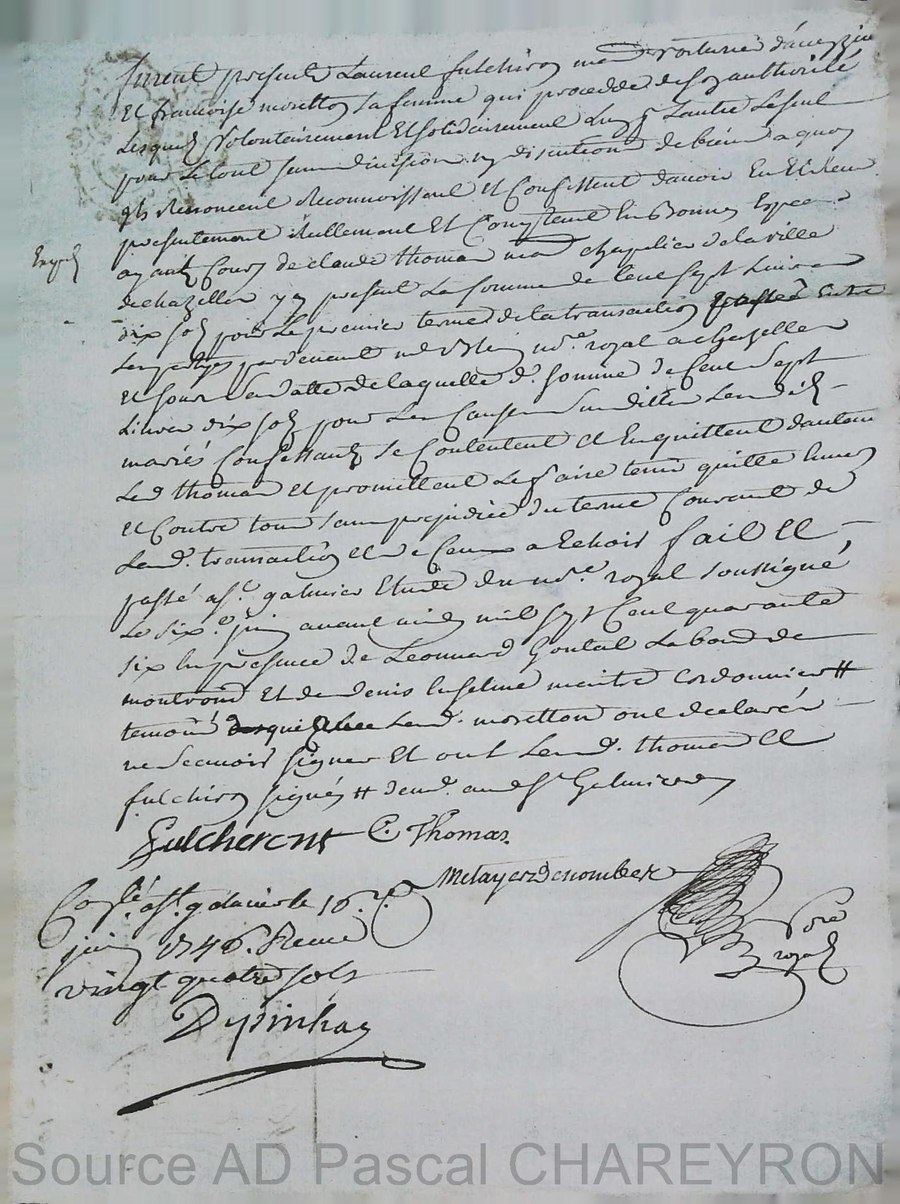 furent presents Laurent fulchiron md voiturier d'aveyzieu
Et francoise moretton sa femme qui procedde de son authorité
Lesquels volontairement Et solidairement Lun pr Lautre Le seul
pour Le tout sans division ny discution de biens a quoy
ils Renoncent Reconnoissent et Confessent davoir Eu Et Receu
presentement Reellement Et Comptent En Bonnes Especes
Expedié
ayant Cours de claude thomas md chapelier de la ville
de chazelles y present La somme de Cent sept Livres
dix sols pour Le premier terme de la transaction passée Entre
Les partyes pardevant me notre royal a chazelles
Et sous sa datte de laquelle de somme de Cent Sept
Livres dix sols pour Les Causes Susdittes Lesdits
mariés Confessants se Contentent Et En quittent d'autant
Led thomas et promettent Le faire tenir quitte Envers
et Contre tous sans prejudice du terme Courant de
Lade transaction et de Ceux a Echoir fait Et
passé a St galmier Etude du nore royal soussigné
Le six juin avant midy mil sept Cent quarante
six En presence de Leonnard Labord de
montrond Et de denis Enselme maitre Cordonnier #
temoins Lade moretton ont declaré
ne Scavoir signer Et ont Lesd. thomas Et
fulchiron signés # demt aud St Galmier
Fulcheront C. Thomas
Metayer Denombex
nore
royal
Conlé a St galmier le 16
juin 1746. Reçu
vingt quatre sols
Depinhac
Source AD Pascal CHAREYRON